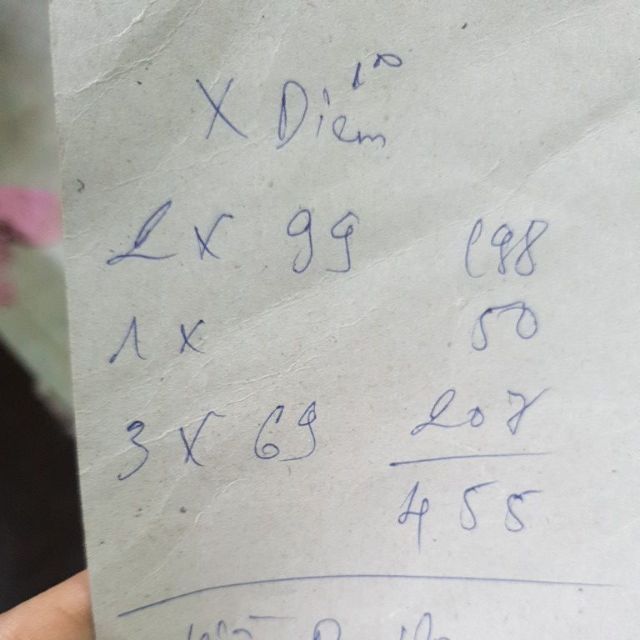 X Diễm
2 x 99 198
1 x 50
3 x 69 207
455